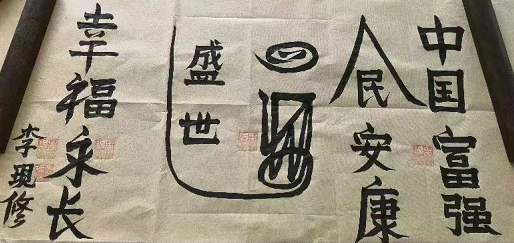 中国富强
人民安康
盛世
幸福永长
李現修